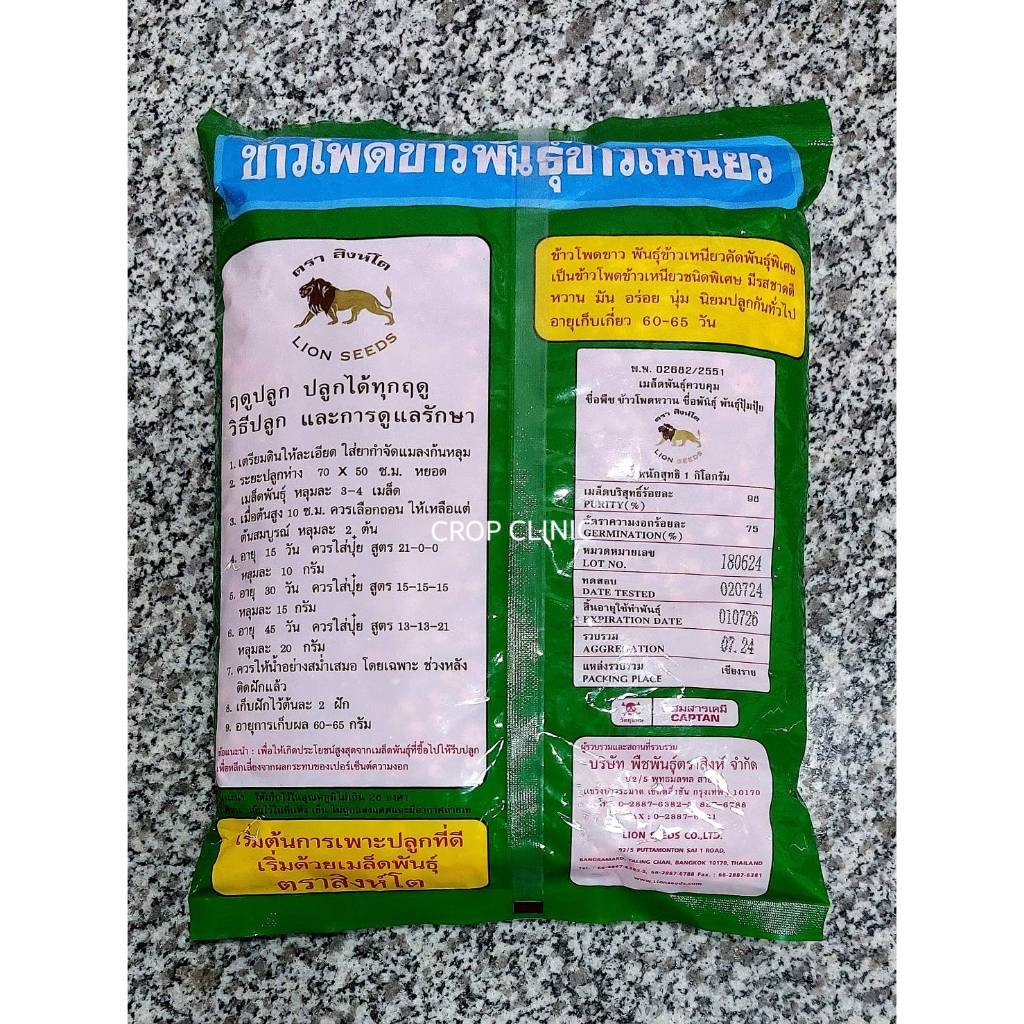 ข้าวโพดขาวพันธุ์ข้าวเหนียว
ตรา สิงห์โต
LION SEEDS
ฤดูปลูก ปลูกได้ทุกฤดู
วิธีปลูก และการดูแลรักษา
1. เตรียมดินให้ละเอียด ใส่ยากำจัดแมลงก้นหลุม
2. ระยะปลูกห่าง 70 X 50 ซ.ม. หยอด
เมล็ดพันธุ์ หลุมละ 3-4 เมล็ด
3. เมื่อต้นสูง 10 ซ.ม. ควรเลือกถอน ให้เหลือแต่
ต้นสมบูรณ์ หลุมละ 2 ต้น
4. อายุ 15 วัน ควรใส่ปุ๋ย สูตร 21-0-0
หลุมละ 10 กรัม
5. อายุ 30 วัน ควรใส่ปุ๋ย สูตร 15-15-15
หลุมละ 15 กรัม
6. อายุ 45 วัน ควรใส่ปุ๋ย สูตร 13-13-21
หลุมละ 20 กรัม
7. ควรให้น้ำอย่างสม่ำเสมอ โดยเฉพาะ ช่วงหลัง
ติดฝักแล้ว
8. เก็บฝักไว้ต้นละ 2 ฝัก
9. อายุการเก็บผล 60-65 กรัม
ข้อแนะนำ : เพื่อให้เกิดประโยชน์สูงสุดจากเมล็ดพันธุ์ที่ซื้อไปให้รีบปลูก
เพื่อหลีกเลี่ยงจากผลกระทบของเปอร์เซ็นต์ความงอก
เริ่มต้นการเพาะปลูกที่ดี
เริ่มด้วยเมล็ดพันธุ์
ตราสิงห์โต
ข้าวโพดขาว พันธุ์ข้าวเหนียวคัดพันธุ์พิเศษ
เป็นข้าวโพดข้าวเหนียวชนิดพิเศษ มีรสชาดดี
หวาน มัน อร่อย นุ่ม นิยมปลูกกันทั่วไป
อายุเก็บเกี่ยว 60-65 วัน
พ.พ. 02682/2551
เมล็ดพันธุ์ควบคุม
ชื่อพืช ข้าวโพดหวาน ชื่อพันธุ์ พันธุ์ปุ๋มปุ้ย
ตรา สิงห์โต
LION SEEDS
หนักสุทธิ 1 กิโลกรัม
เมล็ดบริสุทธิ์ร้อยละ 98
PURITY(%)
อัตราความงอกร้อยละ 75
GERMINATION(%)
หมวดหมายเลข
LOT NO. 180624
ทดสอบ
DATE TESTED 020724
สิ้นอายุใช้ทำพันธุ์
EXPIRATION DATE 010726
รวบรวม
AGGREGATION 07.24
แหล่งรวบรวม เชียงราย
PACKING PLACE
วัตถุมีพิษ
ผสมสารเคมี
CAPTAN
ผู้รวบรวมและสถานที่รวบรวม
บริษัท พืชพันธุ์ตราสิงห์ จำกัด
กรุงเทพฯ 10170
LION SEEDS CO.,LTD.
92/5 PUTTAMONTON SAI 1 ROAD,
BANGRAMARD, TALING CHAN, BANGKOK 10170, THAILAND
66-2887-6788 Fax. : 66-2887-6381
www.Lionseeds.com
CROP CLINIC